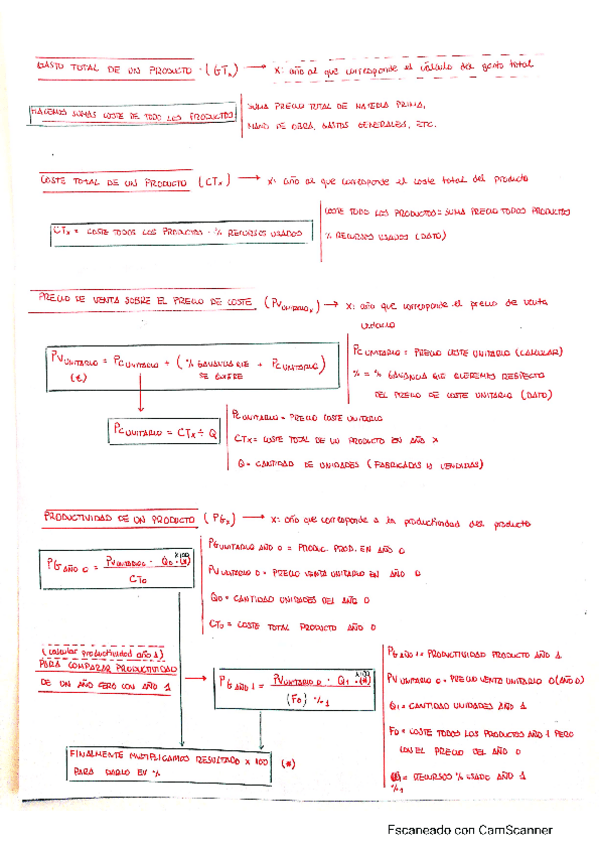 GASTO TOTAL DE UN PRODUCTO · (GTx) → x: año al que corresponde el cálculo del gasto total
HACEMOS SUMAS COSTE DE TODO LOS PRODUCTOS
SUMA PRECIO TOTAL DE MATERIA PRIMA,
MANO DE OBRA, GASTOS GENERALES, ETC.
COSTE TOTAL DE UN PRODUCTO (CTx) → x: año al que corresponde el coste total del producto
CTx = COSTE TODOS LOS PRODUCTOS · % RECURSOS USADOS
COSTE TODO LOS PRODUCTOS = SUMA PRECIO TODOS PRODUCTOS
% RECURSOS USADOS (DATO)
PRECIO DE VENTA SOBRE EL PRECIO DE COSTE (PV UNITARIO x) → x: año que corresponde el precio de venta
unitario
PV UNITARIO = PC UNITARIO + (% GANANCIA QUE + PC UNITARIO)
(€) SE QUIERE
PC UNITARIO = PRECIO COSTE UNITARIO (CALCULAR)
% = % GANANCIA QUE QUEREMOS RESPECTO
DEL PRECIO DE COSTE UNITARIO (DATO)
PC UNITARIO = CTx ÷ Q
PC UNITARIO = PRECIO COSTE UNITARIO
CTx = COSTE TOTAL DE UN PRODUCTO EN AÑO X
Q = CANTIDAD DE UNIDADES (FABRICADAS Y VENDIDAS)
PRODUCTIVIDAD DE UN PRODUCTO (PGx) → x: año que corresponde a la productividad del producto
PG AÑO 0 = PV UNITARIO 0 · Q0 · x100 (*)
CT0
PG UNITARIO AÑO 0 = PRODUC. PROD. EN AÑO 0
PV UNITARIO 0 = PRECIO VENTA UNITARIO EN AÑO 0
Q0 = CANTIDAD UNIDADES DEL AÑO 0
CT0 = COSTE TOTAL PRODUCTO AÑO 0
(calcular productividad año 1)
PARA COMPARAR PRODUCTIVIDAD
DE UN AÑO CERO CON AÑO 1
PG AÑO 1 = PV UNITARIO 0 · Q1 · x100 (*)
(F0) %1
PG AÑO 1 = PRODUCTIVIDAD PRODUCTO AÑO 1
PV UNITARIO 0 = PRECIO VENTA UNITARIO 0 (AÑO 0)
Q1 = CANTIDAD UNIDADES AÑO 1
F0 = COSTE TODOS LOS PRODUCTOS AÑO 1 PERO
CON EL PRECIO DEL AÑO 0
= RECURSOS % USADO AÑO 1
%1
FINALMENTE MULTIPLICAMOS RESULTADO x 100
PARA DARLO EN %
(*)
Escaneado con CamScanner